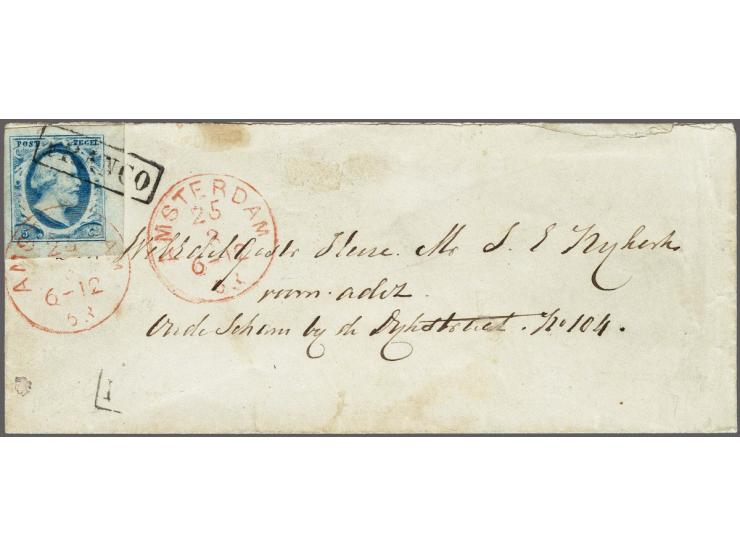 POST ZEGEL
FRANCO
5 C
AMSTERDAM
25
6-12
53
AMSTERDAM
25
2
6-12
53
Heere Mr S. E Nykerk
Oude Schans by de Dykstraat. No 104.